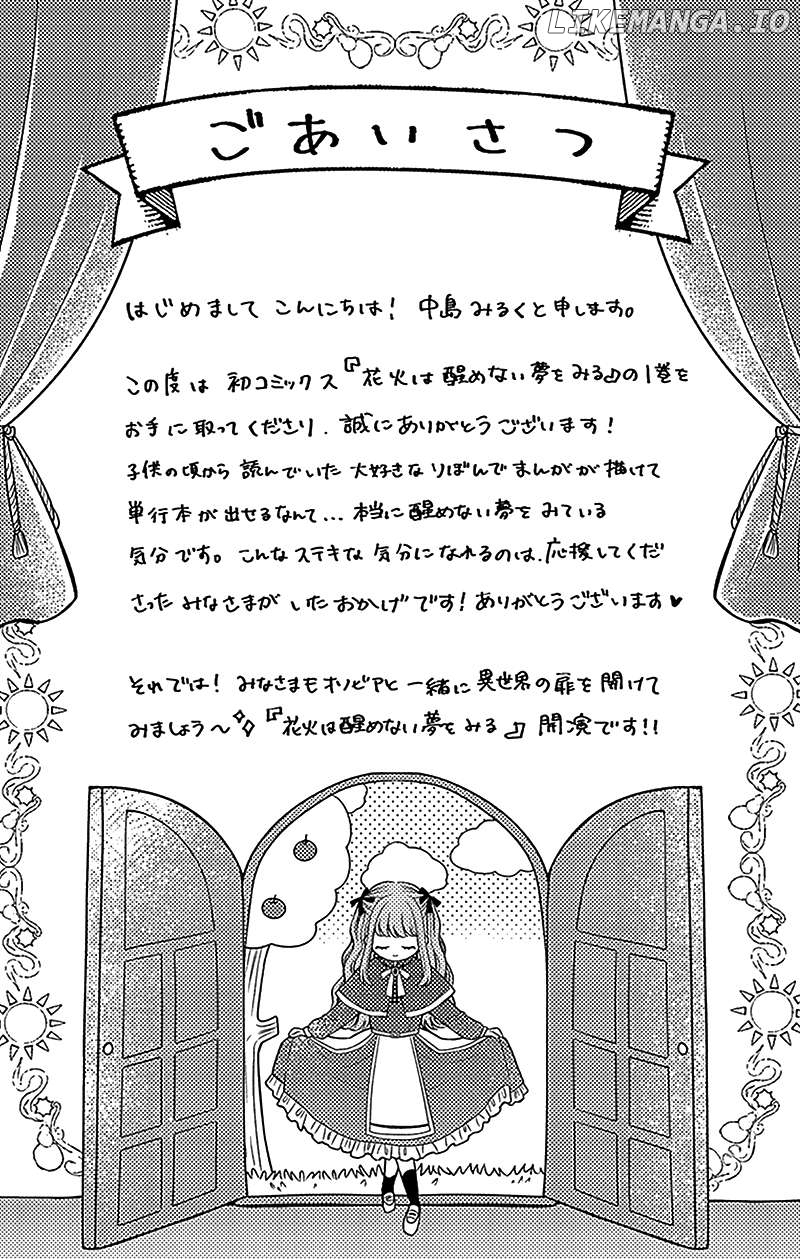 LIKEMANGA.IO
ごあいさつ
はじめまして こんにちは! 中島みるくと申します。
この度は 初コミックス『花火は醒めない夢をみる』の1巻を
お手に取ってくださり、誠にありがとうございます!
子供の頃から読んでいた 大好きなりぼんでまんがが描けて
単行本が出せるなんて... 本当に醒めない夢をみている
気分です。こんなステキな気分になれるのは、応援してくだ
さったみなさまがいたおかげです!ありがとうございます♥
それでは! みなさまもオリビアと一緒に異世界の扉を開けて
みましょう〜『花火は醒めない夢をみる』開演です!!